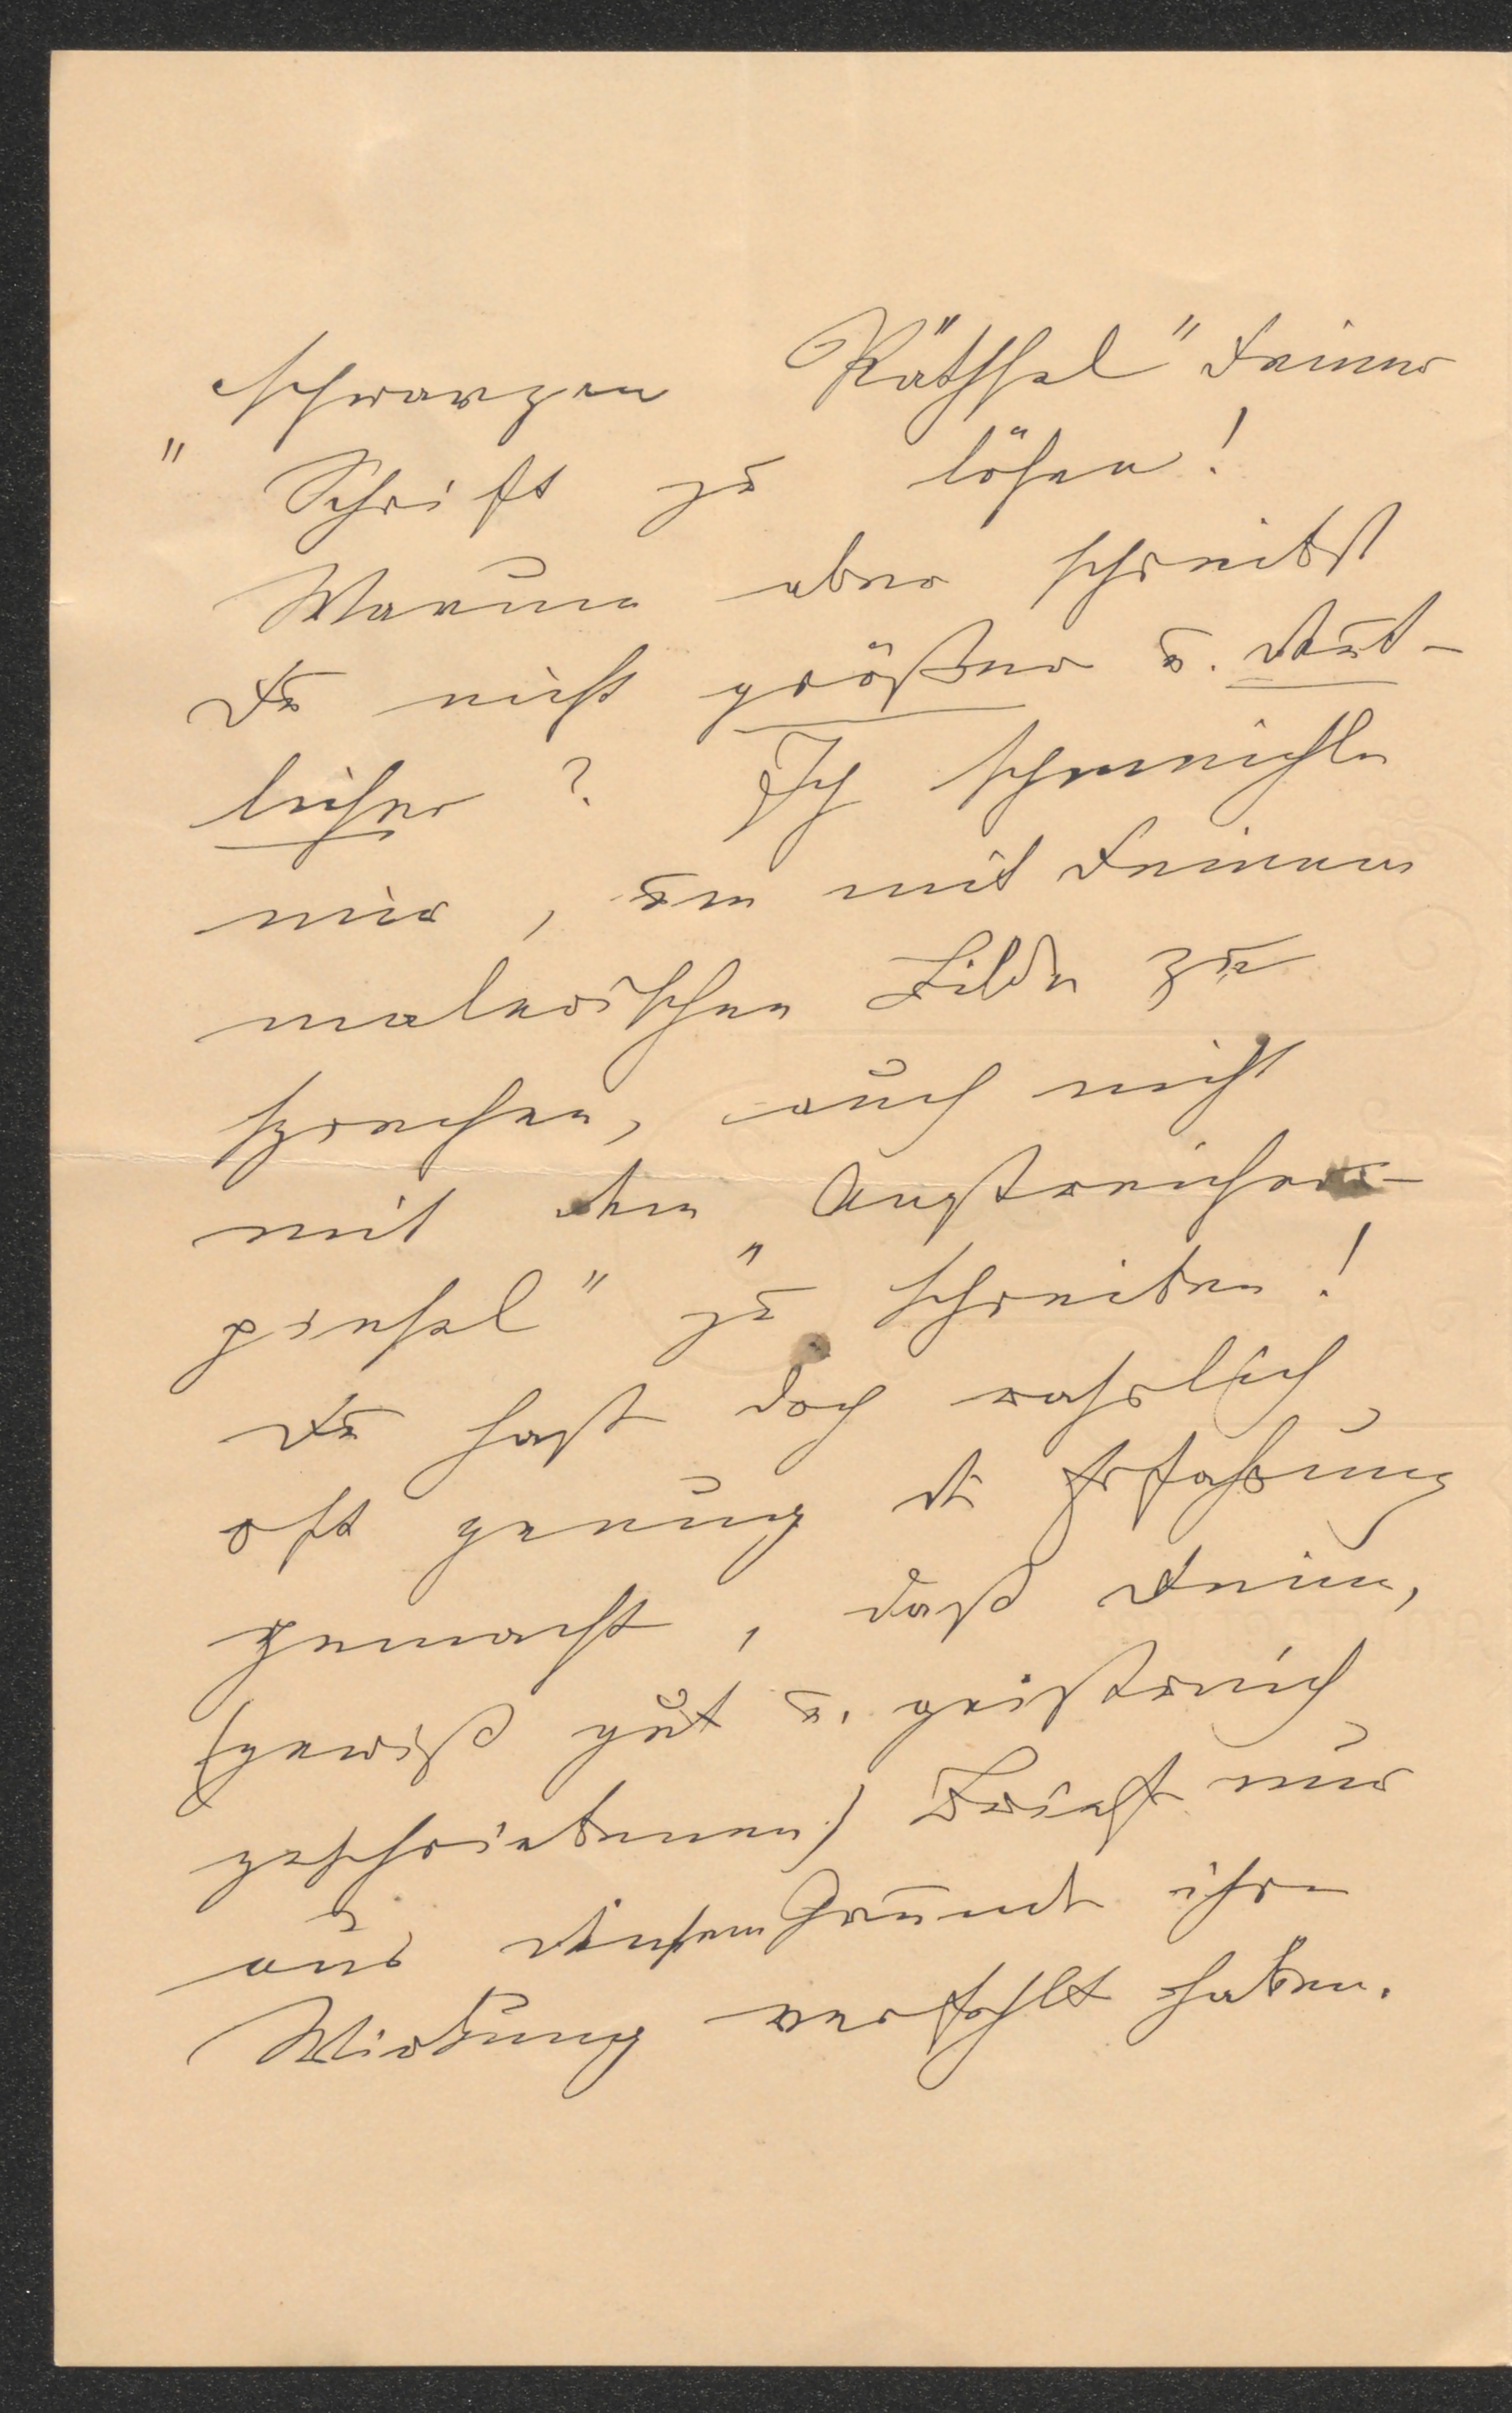 „schwarzen Räthsel" Deiner
Schrift zu lösen!
Warum aber schreibst
Du nicht größer u. deut-
licher? Ich schmeichle
mir, um mit Deinem
malerischen Bilde zu
sprechen, auch nicht
mit dem „Anstreicher-
pinsel" zu schreiben!
Du hast doch wahrlich
oft genug die Erfahrung
gemacht, daß Deine,
(gewiß gut u. geistreich
geschriebenen) Briefe nur
aus diesem Grunde ihre
Wirkung verfehlt haben.